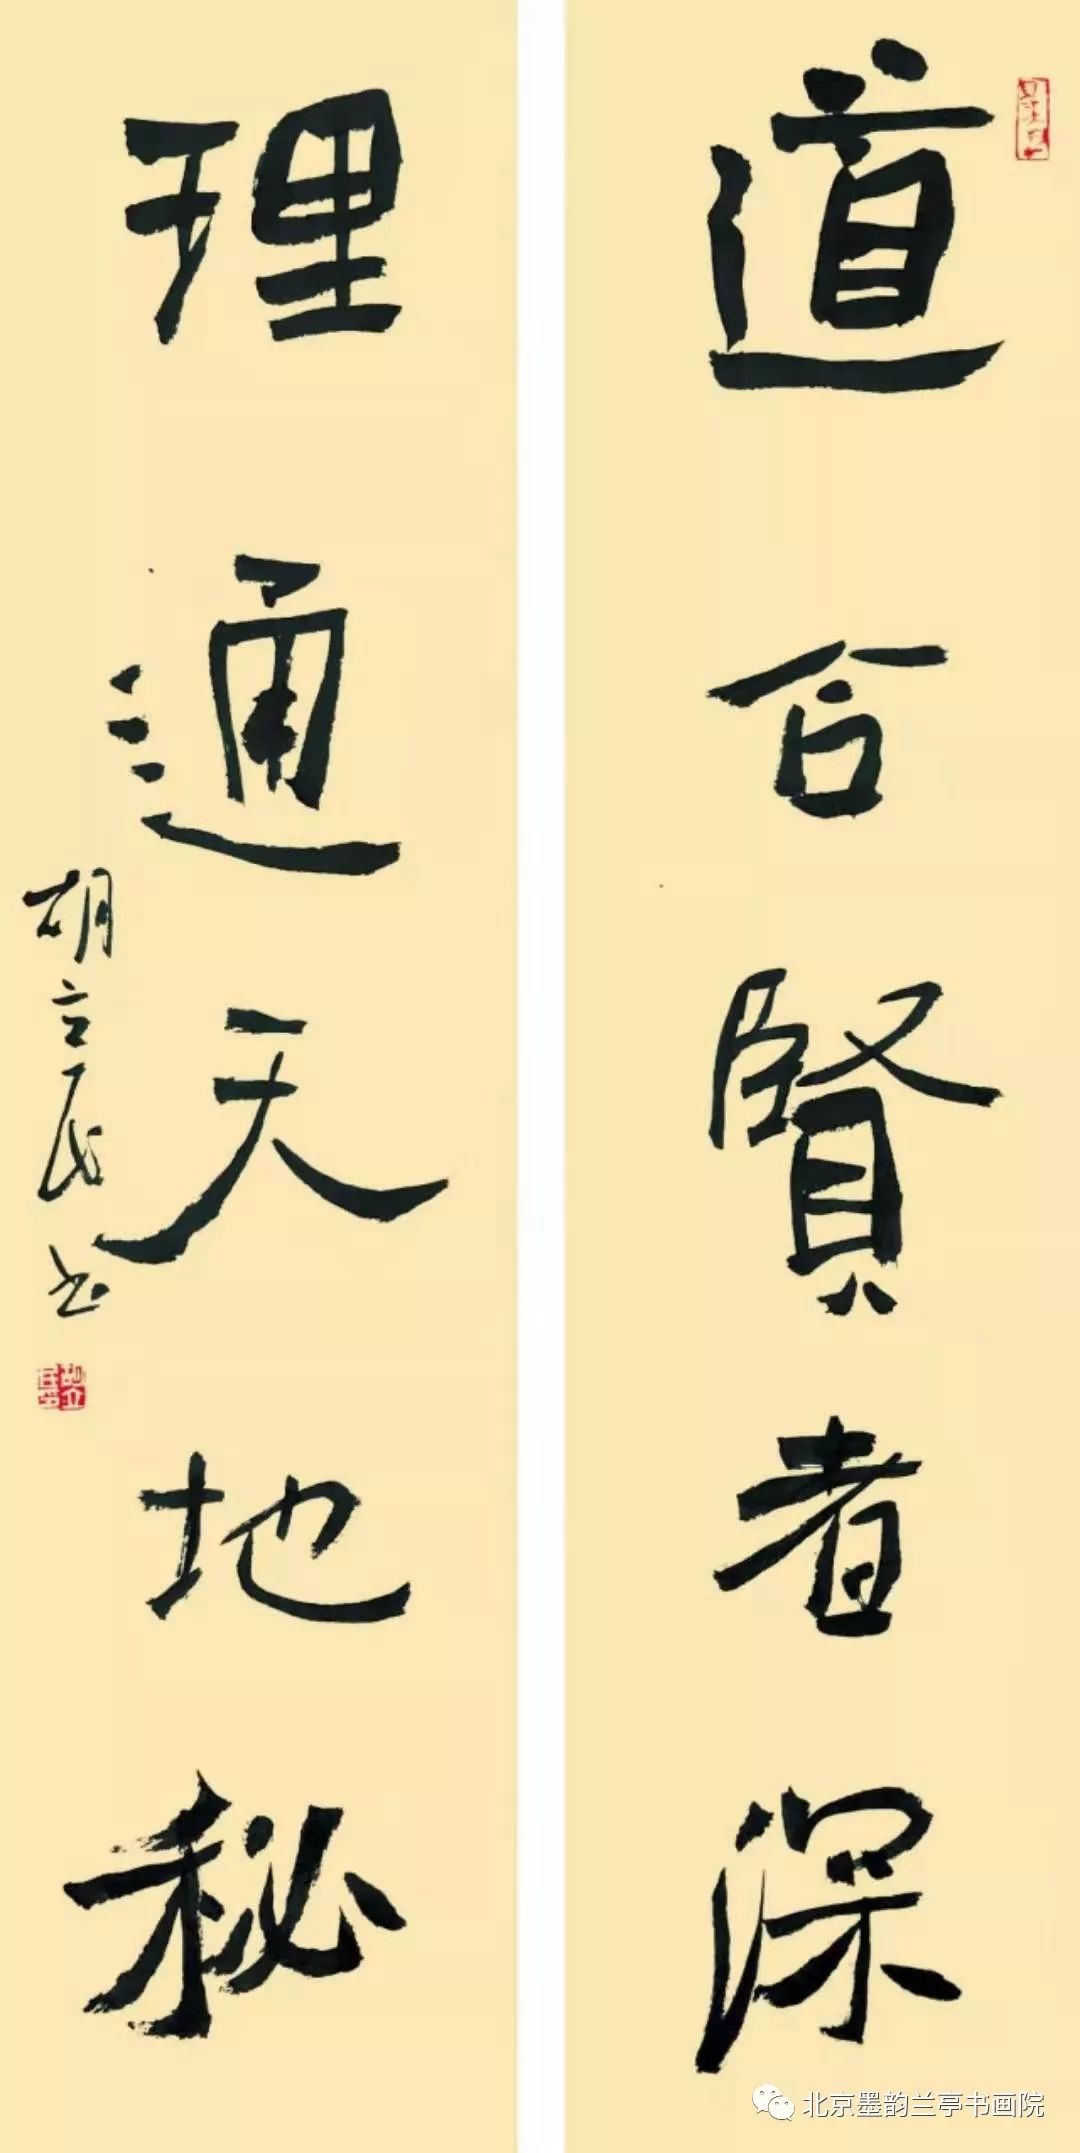 道合賢者深
理通天地秘
胡立民书
北京墨韵兰亭书画院